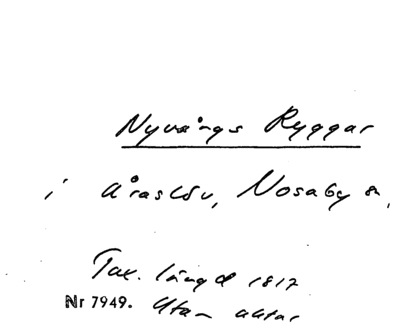 Nyvångs Ryggar
i Åraslöv, Nosaby sn,
Tax. längd 1812
Nr 7949. Utan aktar